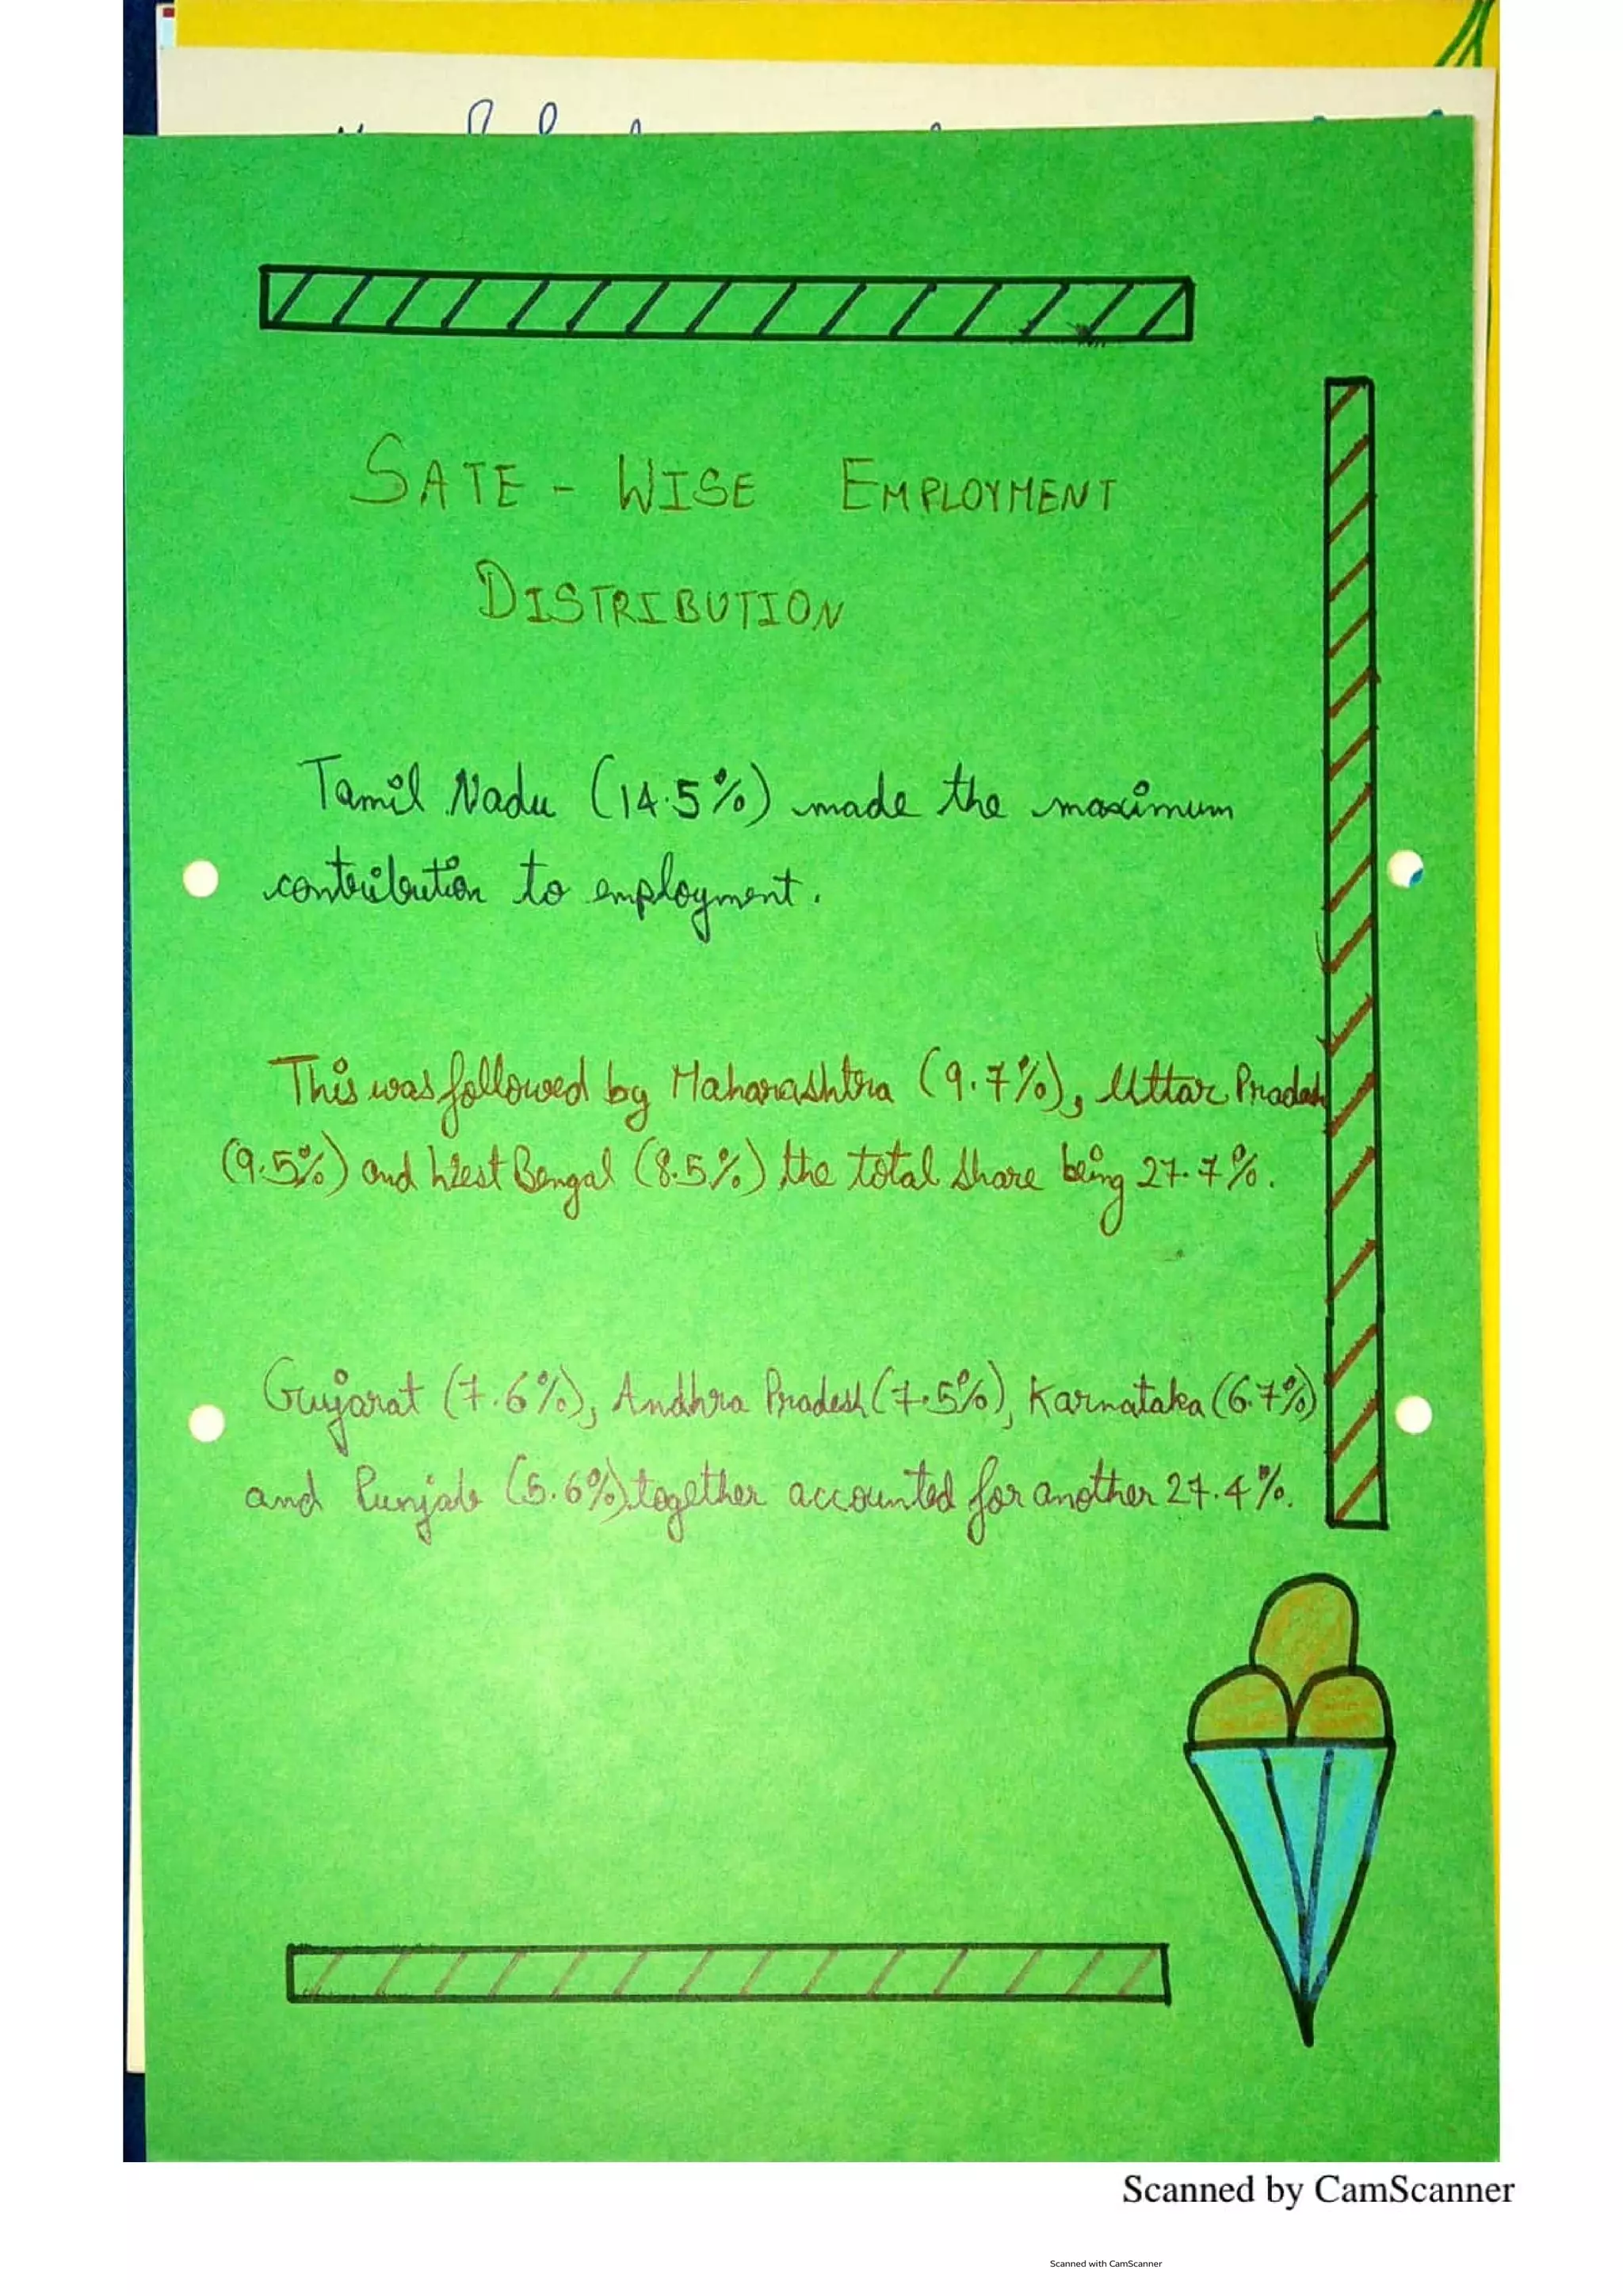 SATE - WISE EMPLOYMENT
DISTRIBUTION
Tamil Nadu (14.5%) made the maximum
contribution to employment.
This was followed by Maharashtra (9.7%), Uttar Pradesh
(9.5%) and West Bengal (8.5%) the total share being 27.7%.
Gujarat (7.6%), Andhra Pradesh (7.5%), Karnataka (6.7%)
and Punjab (5.6%) together accounted for another 27.4%.
Scanned by CamScanner
Scanned with CamScanner